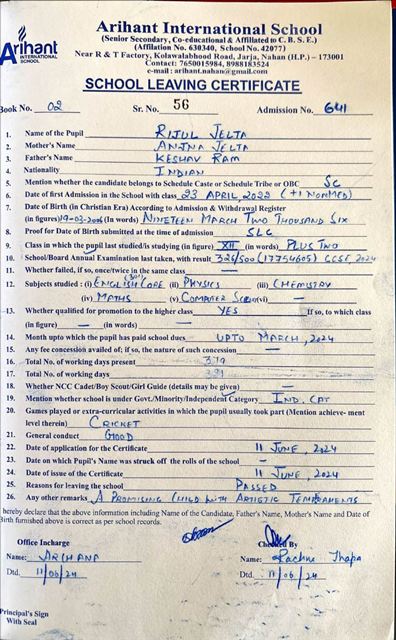 Arihant International School
(Senior Secondary, Co-educational & Affiliated to C. B. S. E.)
(Affilation No. 630340, School No. 42077)
Near R & T Factory, Kolawalabhood Road, Jarja, Nahan (H.P.) – 173001
Contact: 7650015984, 8988183524
e-mail : arihant.nahan@gmail.com
Arihant
INTERNATIONAL
SCHOOL
SCHOOL LEAVING CERTIFICATE
Book No. 02 Sr. No. 56 Admission No. 641
1. Name of the Pupil RIJUL JELTA
2. Mother's Name ANJNA JELTA
3. Father's Name KESHAV RAM
4. Nationality INDIAN
5. Mention whether the candidate belongs to Schedule Caste or Schedule Tribe or OBC SC
6. Date of first Admission in the School with class 23 APRIL, 2022 (+1 NONMED)
7. Date of Birth (in Christian Era) According to Admission & Withdrawal Register
(in figures) 19-03-2006 (In words) NINETEEN MARCH TWO THOUSAND SIX
8. Proof for Date of Birth submitted at the time of admission SLC
9. Class in which the pupil last studied/is studying (in figure) XII (in words) PLUS TWO
10. School/Board Annual Examination last taken, with result 326/500 (17754605) CBSE, 2024
11. Whether failed, if so, once/twice in the same class —
12. Subjects studied : (i) ENGLISH CORE (301) (ii) PHYSICS (iii) CHEMISTRY
(iv) MATHS (v) COMPUTER SCIEN (vi) —
13. Whether qualified for promotion to the higher class YES If so, to which class
(in figure) — (in words) —
14. Month upto which the pupil has paid school dues UPTO MARCH, 2024
15. Any fee concession availed of; if so, the nature of such concession —
16. Total No. of working days present
17. Total No. of working days
18. Whether NCC Cadet/Boy Scout/Girl Guide (details may be given) —
19. Mention whether school is under Govt./Minority/Independent Category IND. CAT
20. Games played or extra-curricular activities in which the pupil usually took part (Mention achieve- ment
level therein) CRICKET
21. General conduct GOOD
22. Date of application for the Certificate 11 JUNE, 2024
23. Date on which Pupil's Name was struck off the rolls of the school —
24. Date of issue of the Certificate 11 JUNE, 2024
25. Reasons for leaving the school PASSED
26. Any other remarks A PROMISING CHILD WITH ARTISTIC TEMPERAMENTS
hereby declare that the above information including Name of the Candidate, Father's Name, Mother's Name and Date of
Birth furnished above is correct as per school records.
Office Incharge Checked By
Name: ARIHANT Name: Rachna Thapa
Dtd. 11/06/24 Dtd. 11/06/24
Principal's Sign
With Seal